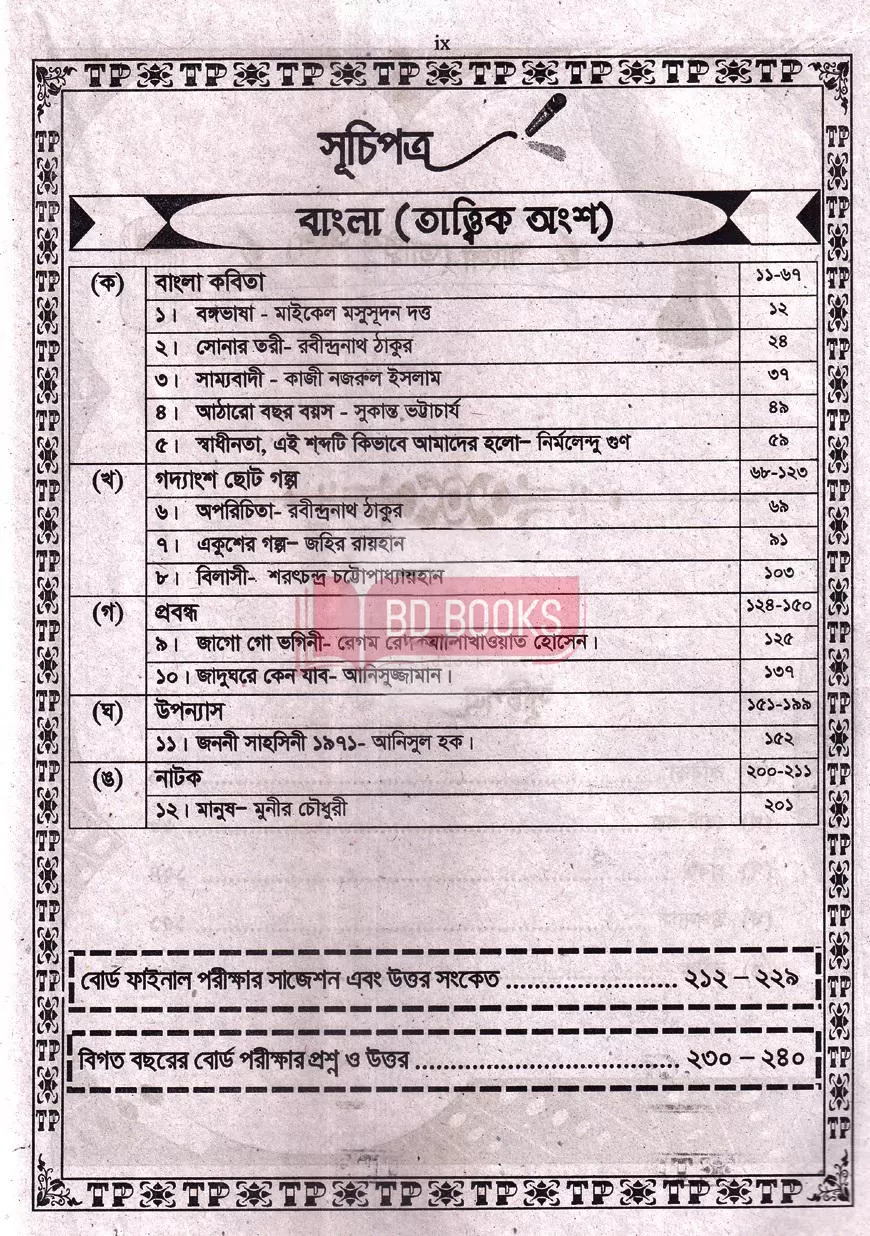 ix
সূচিপত্র
বাংলা (তাত্ত্বিক অংশ)
(ক) বাংলা কবিতা ১১-৬৭
১। বঙ্গভাষা - মাইকেল মসুসূদন দত্ত ১২
২। সোনার তরী- রবীন্দ্রনাথ ঠাকুর ২৪
৩। সাম্যবাদী - কাজী নজরুল ইসলাম ৩৭
৪। আঠারো বছর বয়স - সুকান্ত ভট্টাচার্য ৪৯
৫। স্বাধীনতা, এই শব্দটি কিভাবে আমাদের হলো– নির্মলেন্দু গুণ ৫৯
(খ) গদ্যাংশ ছোট গল্প ৬৮-১২৩
৬। অপরিচিতা- রবীন্দ্রনাথ ঠাকুর ৬৯
৭। একুশের গল্প– জহির রায়হান ৯১
৮। বিলাসী- শরৎচন্দ্র চট্টোপাধ্যায়হান ১০৩
BD BOOKS
(গ) প্রবন্ধ ১২৪-১৫০
৯। জাগো গো ভগিনী- হোসেন। ১২৫
১০। জাদুঘরে কেন যাব- আনিসুজ্জামান। ১৩৭
(ঘ) উপন্যাস ১৫১-১৯৯
১১। জননী সাহসিনী ১৯৭১- আনিসুল হক। ১৫২
(ঙ) নাটক ২০০-২১১
১২। মানুষ– মুনীর চৌধুরী ২০১
বোর্ড ফাইনাল পরীক্ষার সাজেশন এবং উত্তর সংকেত ........................ ২১২ – ২২৯
বিগত বছরের বোর্ড পরীক্ষার প্রশ্ন ও উত্তর ..................................... ২৩০ – ২৪০